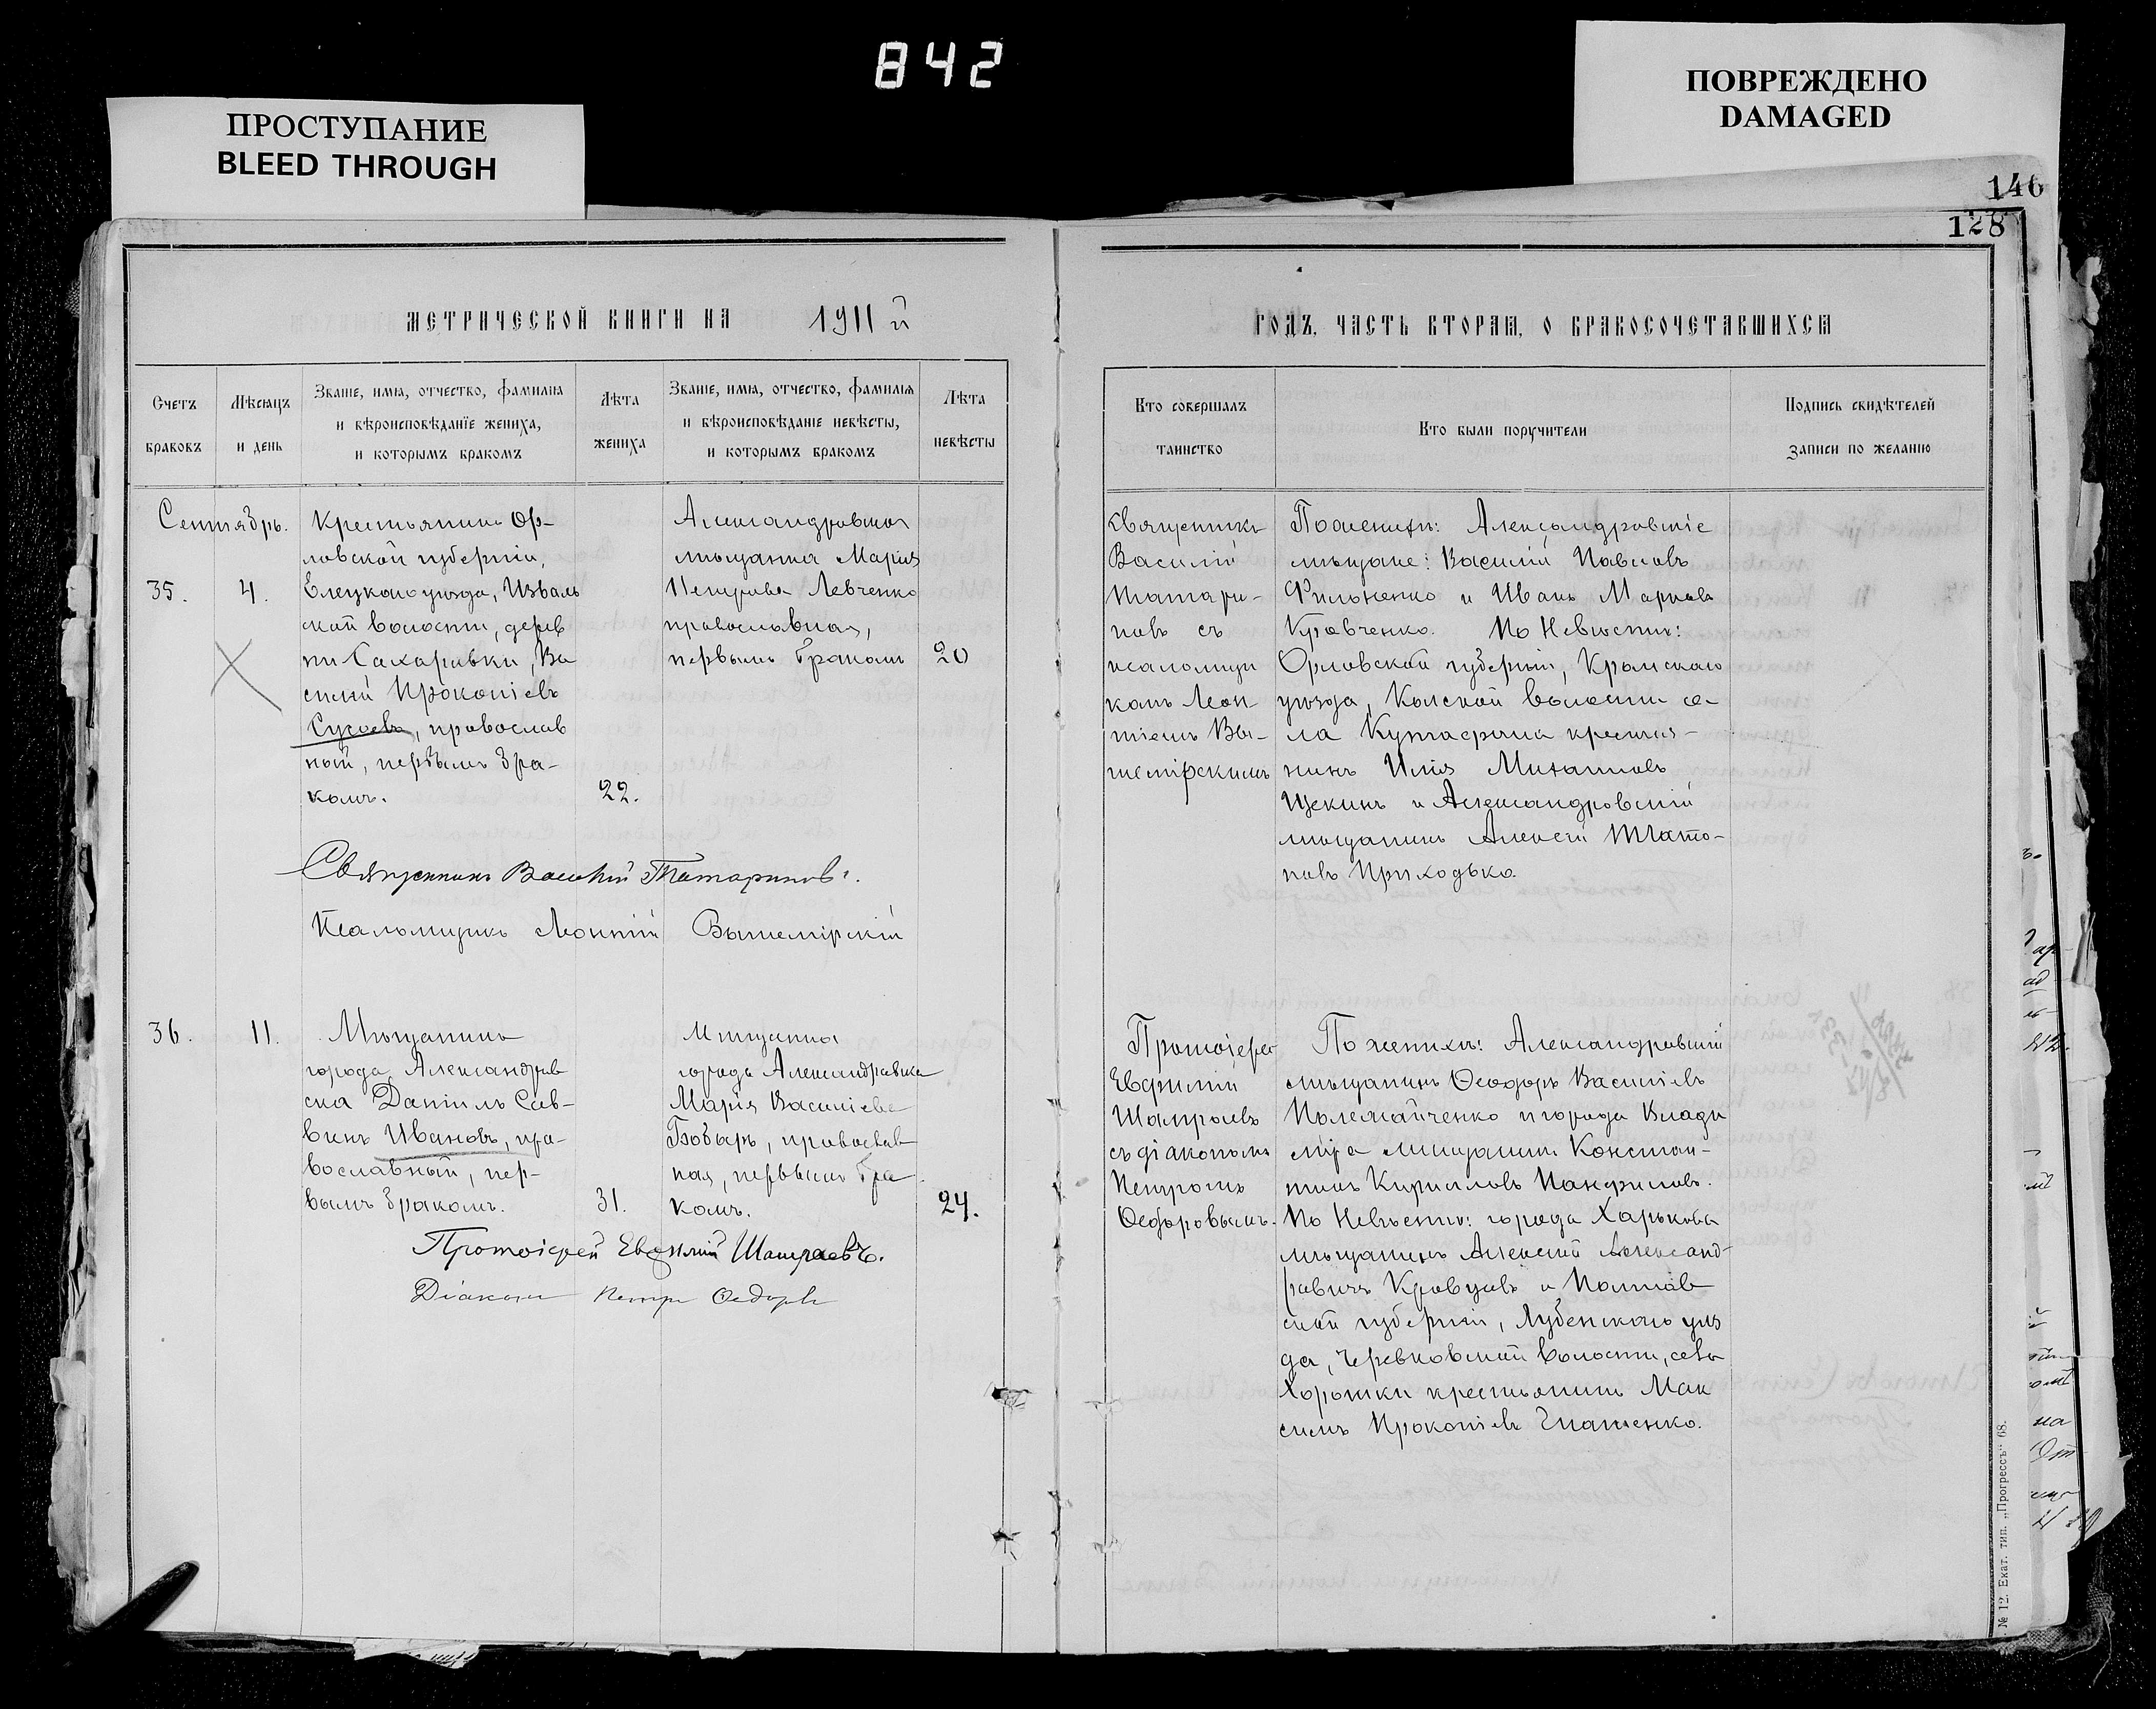 842
ПРОСТУПАНИЕ
BLEED THROUGH
ПОВРЕЖДЕНО
DAMAGED
140
128
МЕТРИЧЕСКОЙ КНИГИ НА 1911 й
ГОДЪ, ЧАСТЬ ВТОРАЯ, О БРАКОСОЧЕТАВШИХСЯ
Счетъ
браковъ
Мѣсяцъ
и день
Званіе, имя, отчество, фамилія
и вѣроисповѣданіе жениха,
и которымъ бракомъ
Лѣта
жениха
Званіе, имя, отчество, фамилія
и вѣроисповѣданіе невѣсты,
и которымъ бракомъ
Лѣта
невѣсты
Кто совершалъ
таинство
Кто были поручители
Подпись свидѣтелей
записи по желанію
Сентябрь.
35.
4.
Крестьянинъ Ор-
ловской губерніи,
Елецкаго уѣзда, Изваль
ской волости, дерев
ни Сахаровки, Ва
силій Прокопіевъ
Сухоевъ, православ
ный, первымъ бра-
комъ.
22.
Александровская
мѣщанка Марія
Петрова Левченко
православная,
первымъ бракомъ
20
Священникъ
Василій
Татари-
новъ съ
псаломщи
комъ Леон-
тіемъ Вы-
шемірскимъ
По женихѣ: Александровскіе
мѣщане: Василій Павловъ
Фильненко и Иванъ Марковъ
Кравченко. По Невѣстѣ:
Орловской губерніи, Кромскаго
уѣзда, Колской волости се-
ла Кутафина крестья-
нинъ Илія Михаиловъ
Щекинъ и Александровскій
мѣщанинъ Алексѣй Плато-
новъ Приходько.
Священникъ Василій Татариновъ.
Псаломщикъ Леонтій Вышемірскій
36.
11.
Мѣщанинъ
города Александров
ска Даніилъ Сав-
винъ Ивановъ, пра-
вославный, пер-
вымъ бракомъ.
31.
Мѣщанка
города Александровска
Марія Васильева
Бобарь, православ
ная, первымъ бра
комъ.
24.
Протоіерей
Евфимій
Шапраевъ
съ діакономъ
Петромъ
Ѳедоровымъ.
По женихѣ: Александровскій
мѣщанинъ Ѳеодоръ Василіевъ
Полежайченко и города Влади
міра мѣщанинъ Констан-
тинъ Кирилловъ Панфиловъ.
По Невѣстѣ: города Харькова
мѣщанинъ Алексѣй Александ-
ровичъ Кравцовъ и Полтав
ской губерніи, Лубенскаго уѣз
да, Черевковской волости, села
Хорошки крестьянинъ Мак
симъ Прокопіевъ Гнатенко.
Протоіерей Евфимій Шапраевъ.
Діаконъ Петръ Ѳедоровъ
№ 12. Екат. тип. „Прогрессъ“ 68.